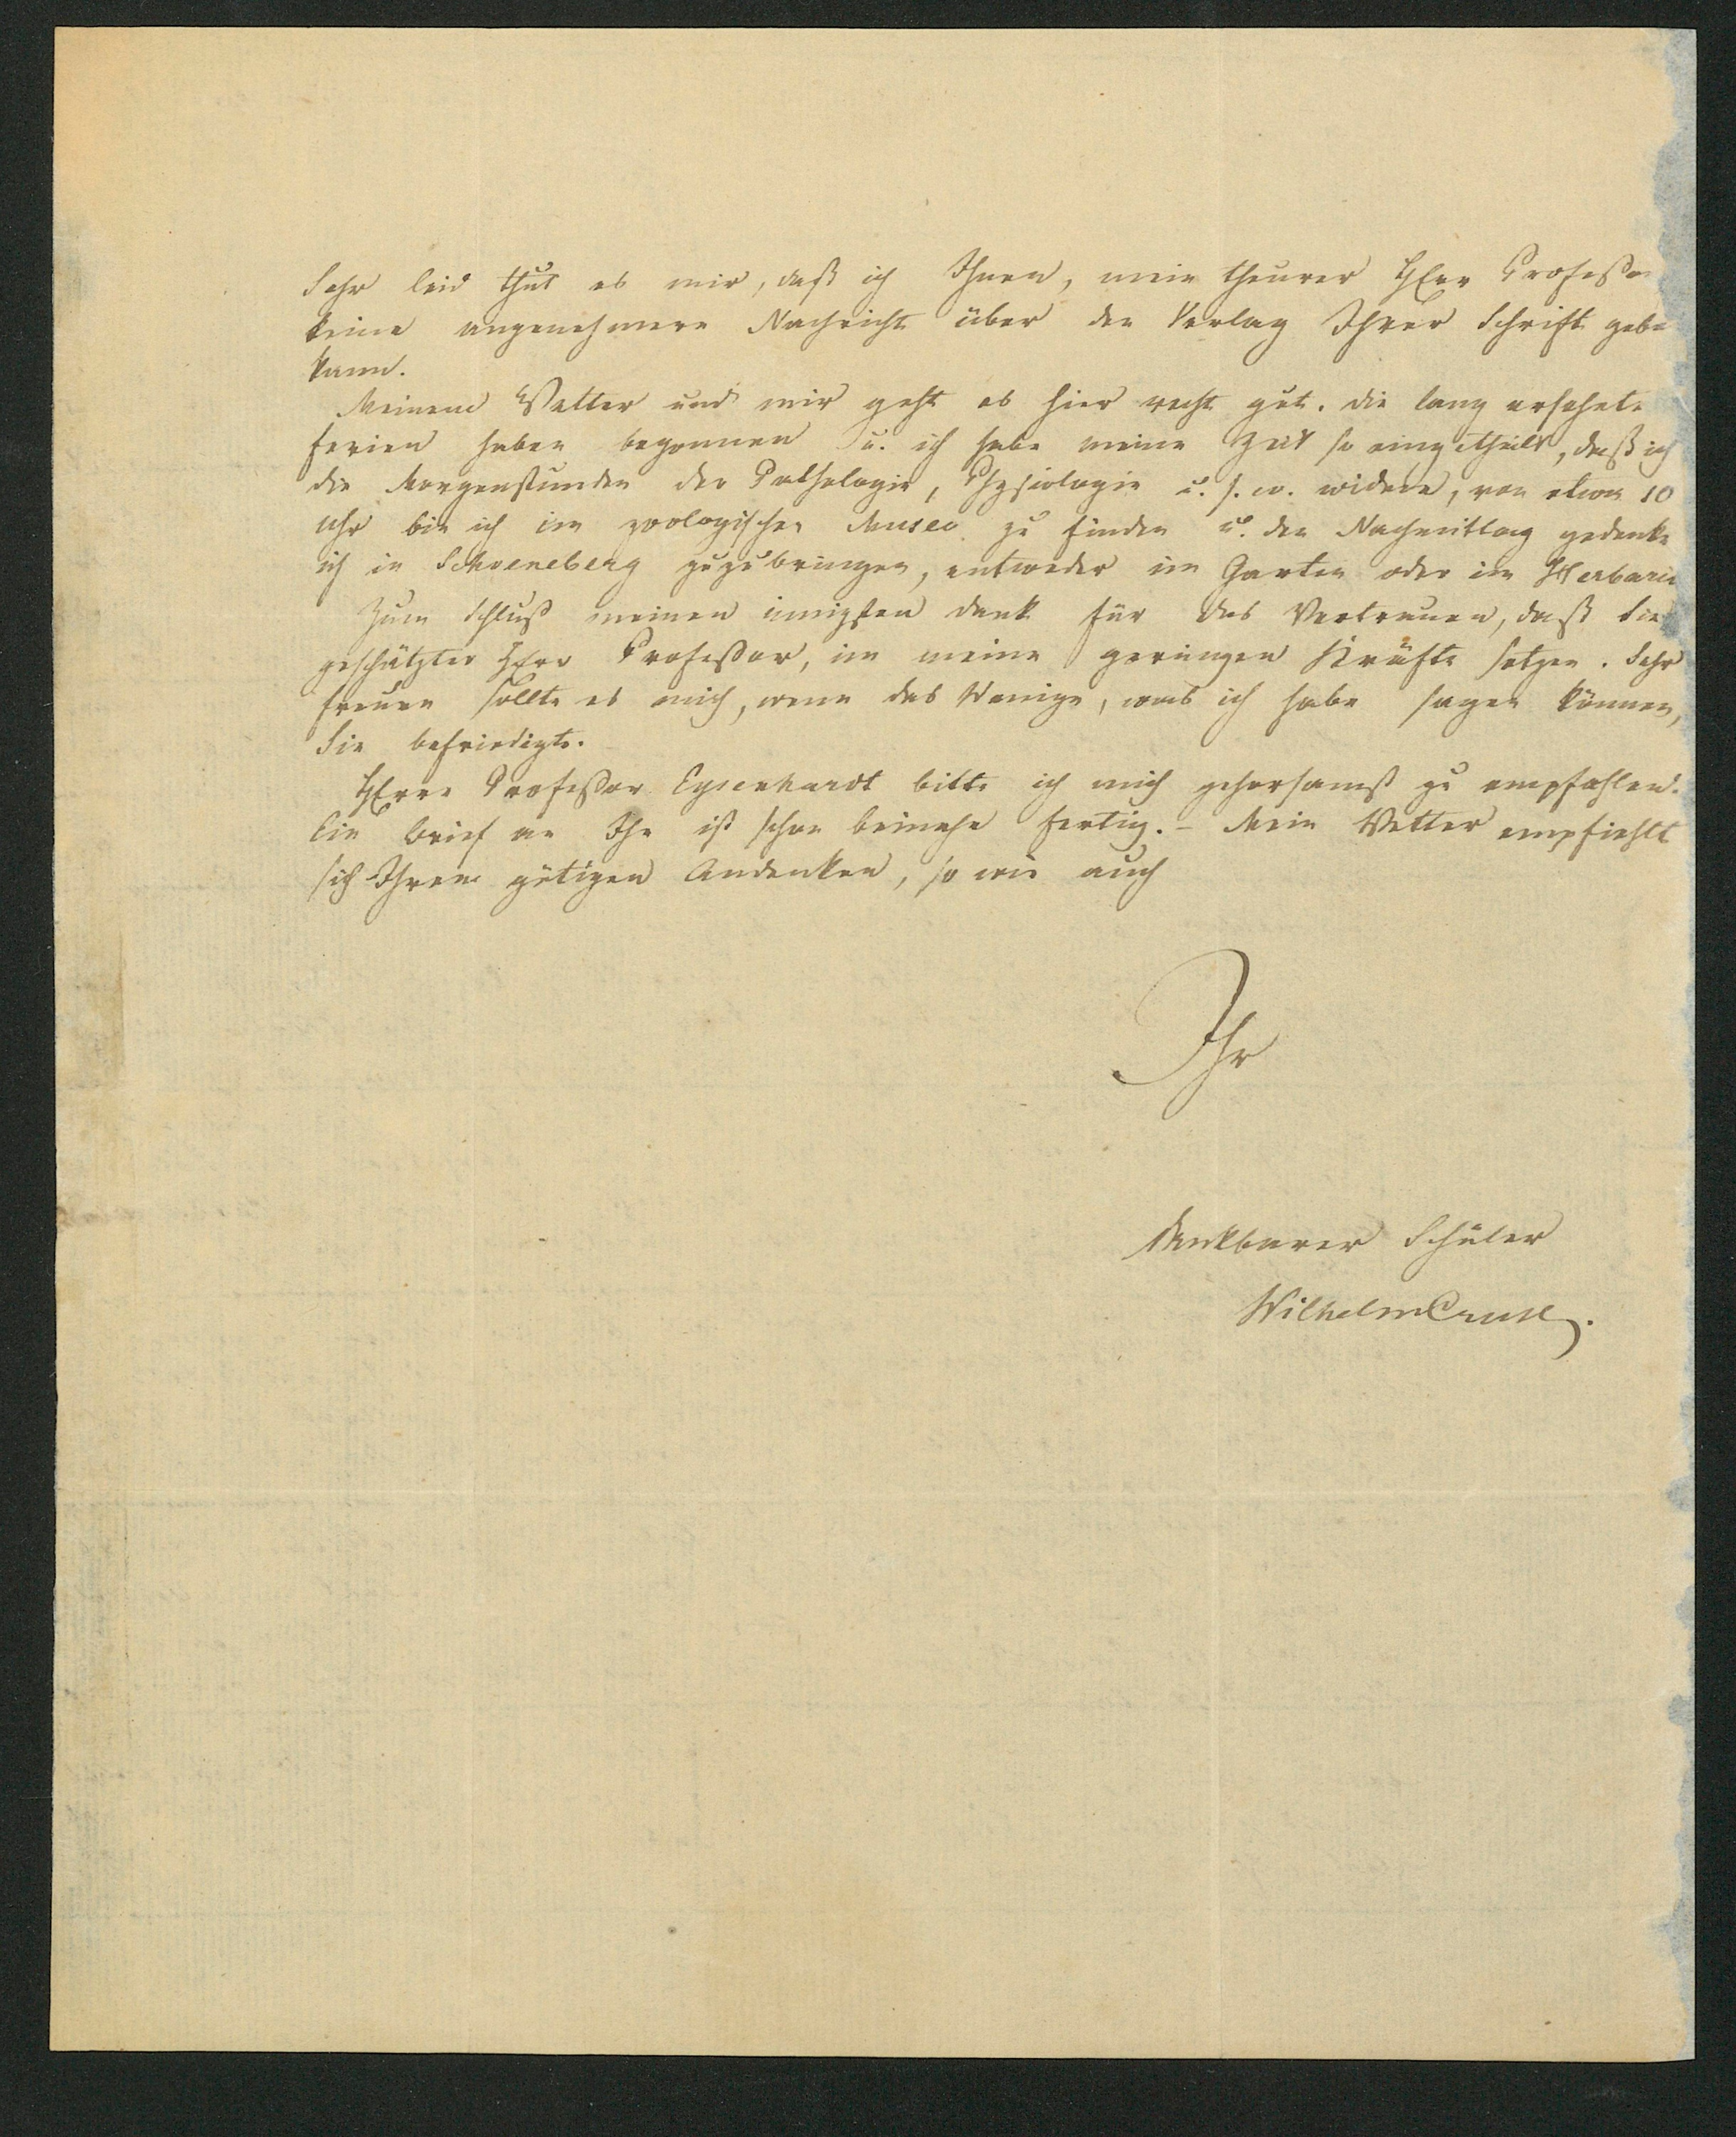 Sehr leid thut es mir, daß ich Ihnen, mein theurer HErr Professor
keine angenehmere Nachricht über den Verlag Ihrer Schrift geben
kann.
Meinem Vetter und mir geht es hier recht gut. Die lang ersehnte
Ferien haben begonnen u. ich habe meine Zeit so eingetheilt, daß ich
die Morgenstunden der Pathologie, Physiologie u. s. w. widme, von etwa 10
Uhr bin ich im zoologischen Museo zu finden u. den Nachmittag gedenke
ich in Schoeneberg zuzubringen, entweder im Garten oder im Herbario
Zum Schluß meinen innigsten Dank für das Vertrauen, daß Sie
geschätzter HErr Professor, in meine geringen Kräfte setzen. Sehr
freuen sollte es mich, wenn das Wenige, was ich habe sagen können,
Sie befriedigte.
HErrn Professor Eysenhardt bitte ich mich gehorsamst zu empfehlen.
Ein Brief an Ihn ist schon beinahe fertig. – Mein Vetter empfiehlt
sich Ihrem gütigen Andenken, so wie auch
Ihr
dankbarer Schüler
Wilhelm Cruse.